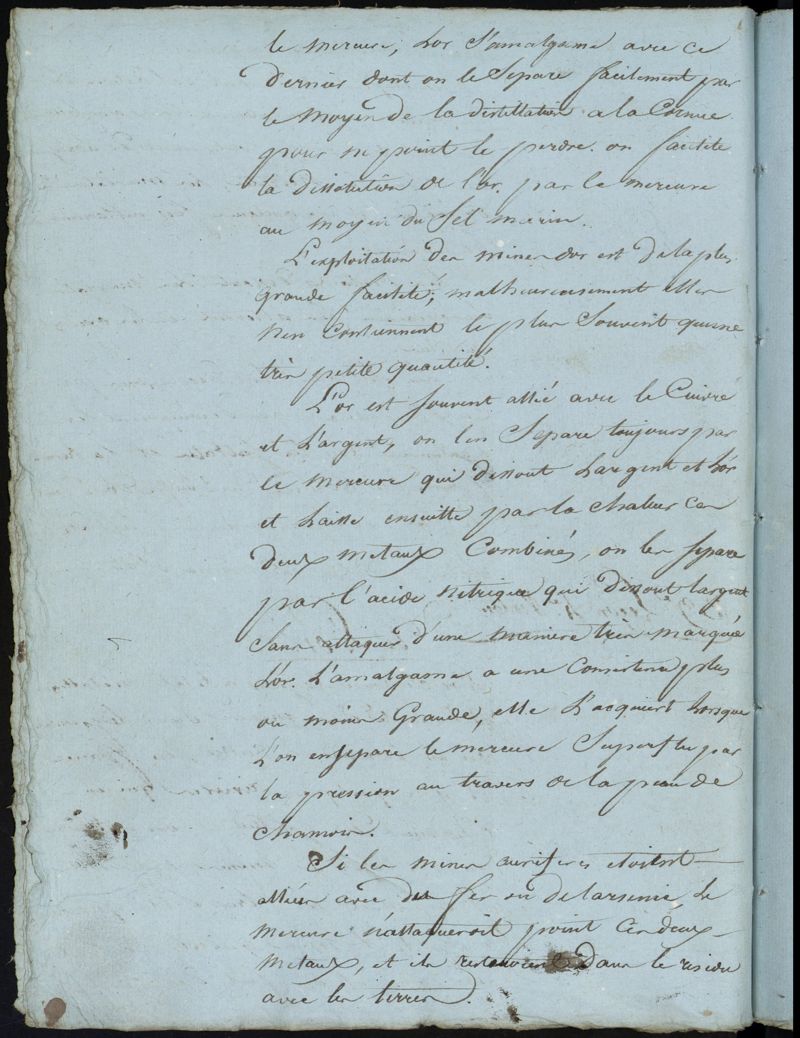 le mercure, L'or S'amalgame avec ce
dernier dont on le Separe facilement par
le moyen de la distillation a la Cornue
pour ne point le perdre. on facilite
la dissolution de l'or par le mercure
au moyen du Sel marin.
L'exploitation des mines d'or est de la plus
grande facilité, malheureusement elles
n'en Contiennent le plus Souvent qu'une
très petite quantité.
L'or est souvent allié avec le Cuivre
et L'argent, on l'en Separe toujours par
le mercure qui dissout L'argent et L'or
et Laisse ensuitte par la chaleur ces
deux metaux Combinés, on les separe
par l'acide nitrique qui dissout l'argent
sans attaquer d'une maniere tres marquée
L'or. L'amalgame a une Consistence plus
ou moins Grande, elle L'acquiert Lorsque
L'on en separe le mercure Superflu par
la pression au travers de la peau de
chamois.
Si les mines auriferes etoient
alliées avec du fer ou de l'arsenic Le
mercure n'attaqueroit point Ces deux
metaux, et ils resteroient dans le residu
avec les terres.